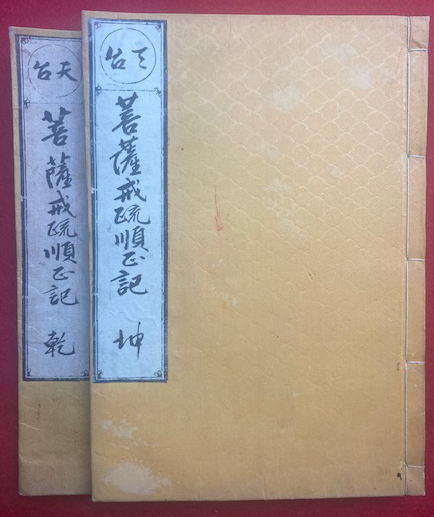 天台
菩薩戒疏順正記 乾
天台
菩薩戒疏順正記 坤